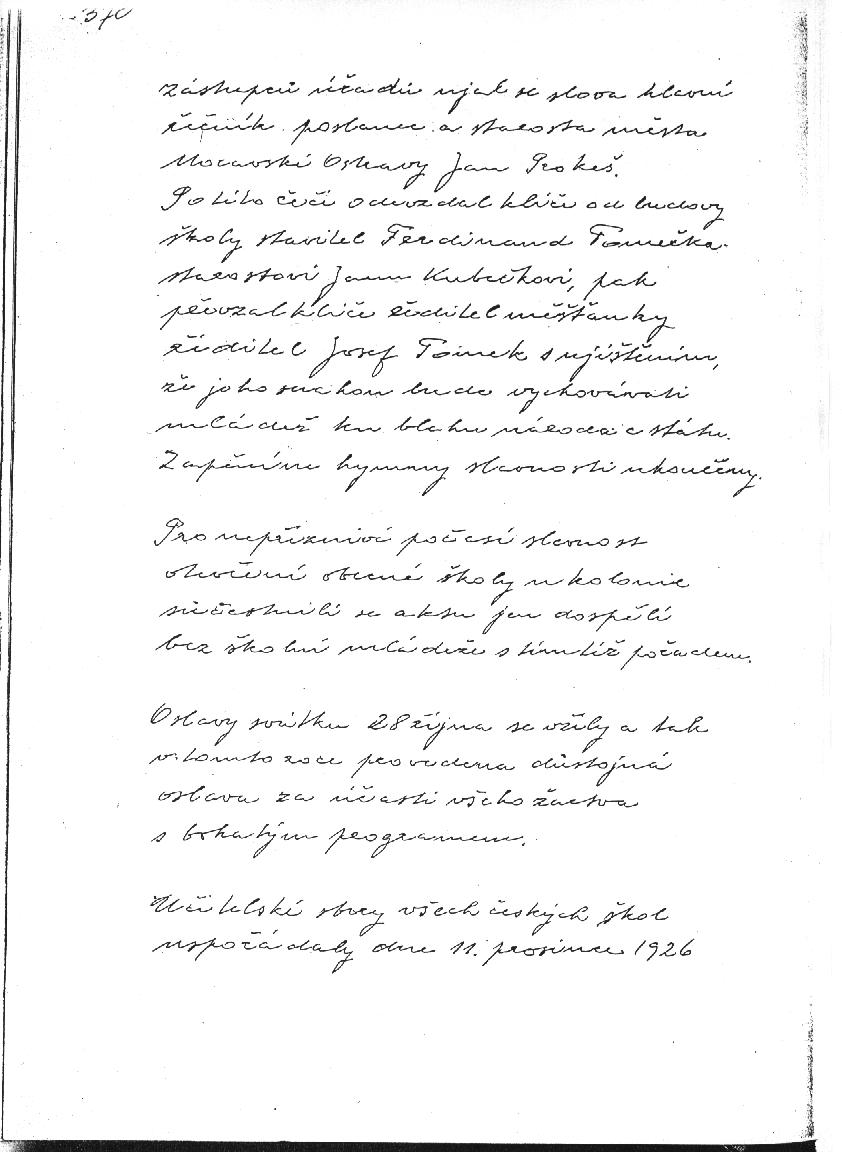 zástupců úřadů ujal se slova hlavní
řečník poslanec a starosta města
Moravské Ostravy Jan Prokeš.
Po této řeči odevzdal klíče od budovy
školy stavitel Ferdinand Tomečka
starostovi Janu Kubačkovi, pak
převzal klíče ředitel měšťanky
ředitel Josef Tomek s ujištěním,
že jeho snahou bude vychovávati
mládež ku blahu národa a státu.
Zapěním hymny slavnosti ukončeny.

Pro nepříznivé počasí slavnost
otevření obecné školy u kolonie
súčastnili se aktu jen dospělí
bez školní mládeže s tímtéž pořadem.

Oslavy svátku 28 října se vžily a tak
v tomto roce provedena důstojná
oslava za účasti všeho žactva
s bohatým programem.

Učitelské sbory všech českých škol
uspořádaly dne 11. prosince 1926